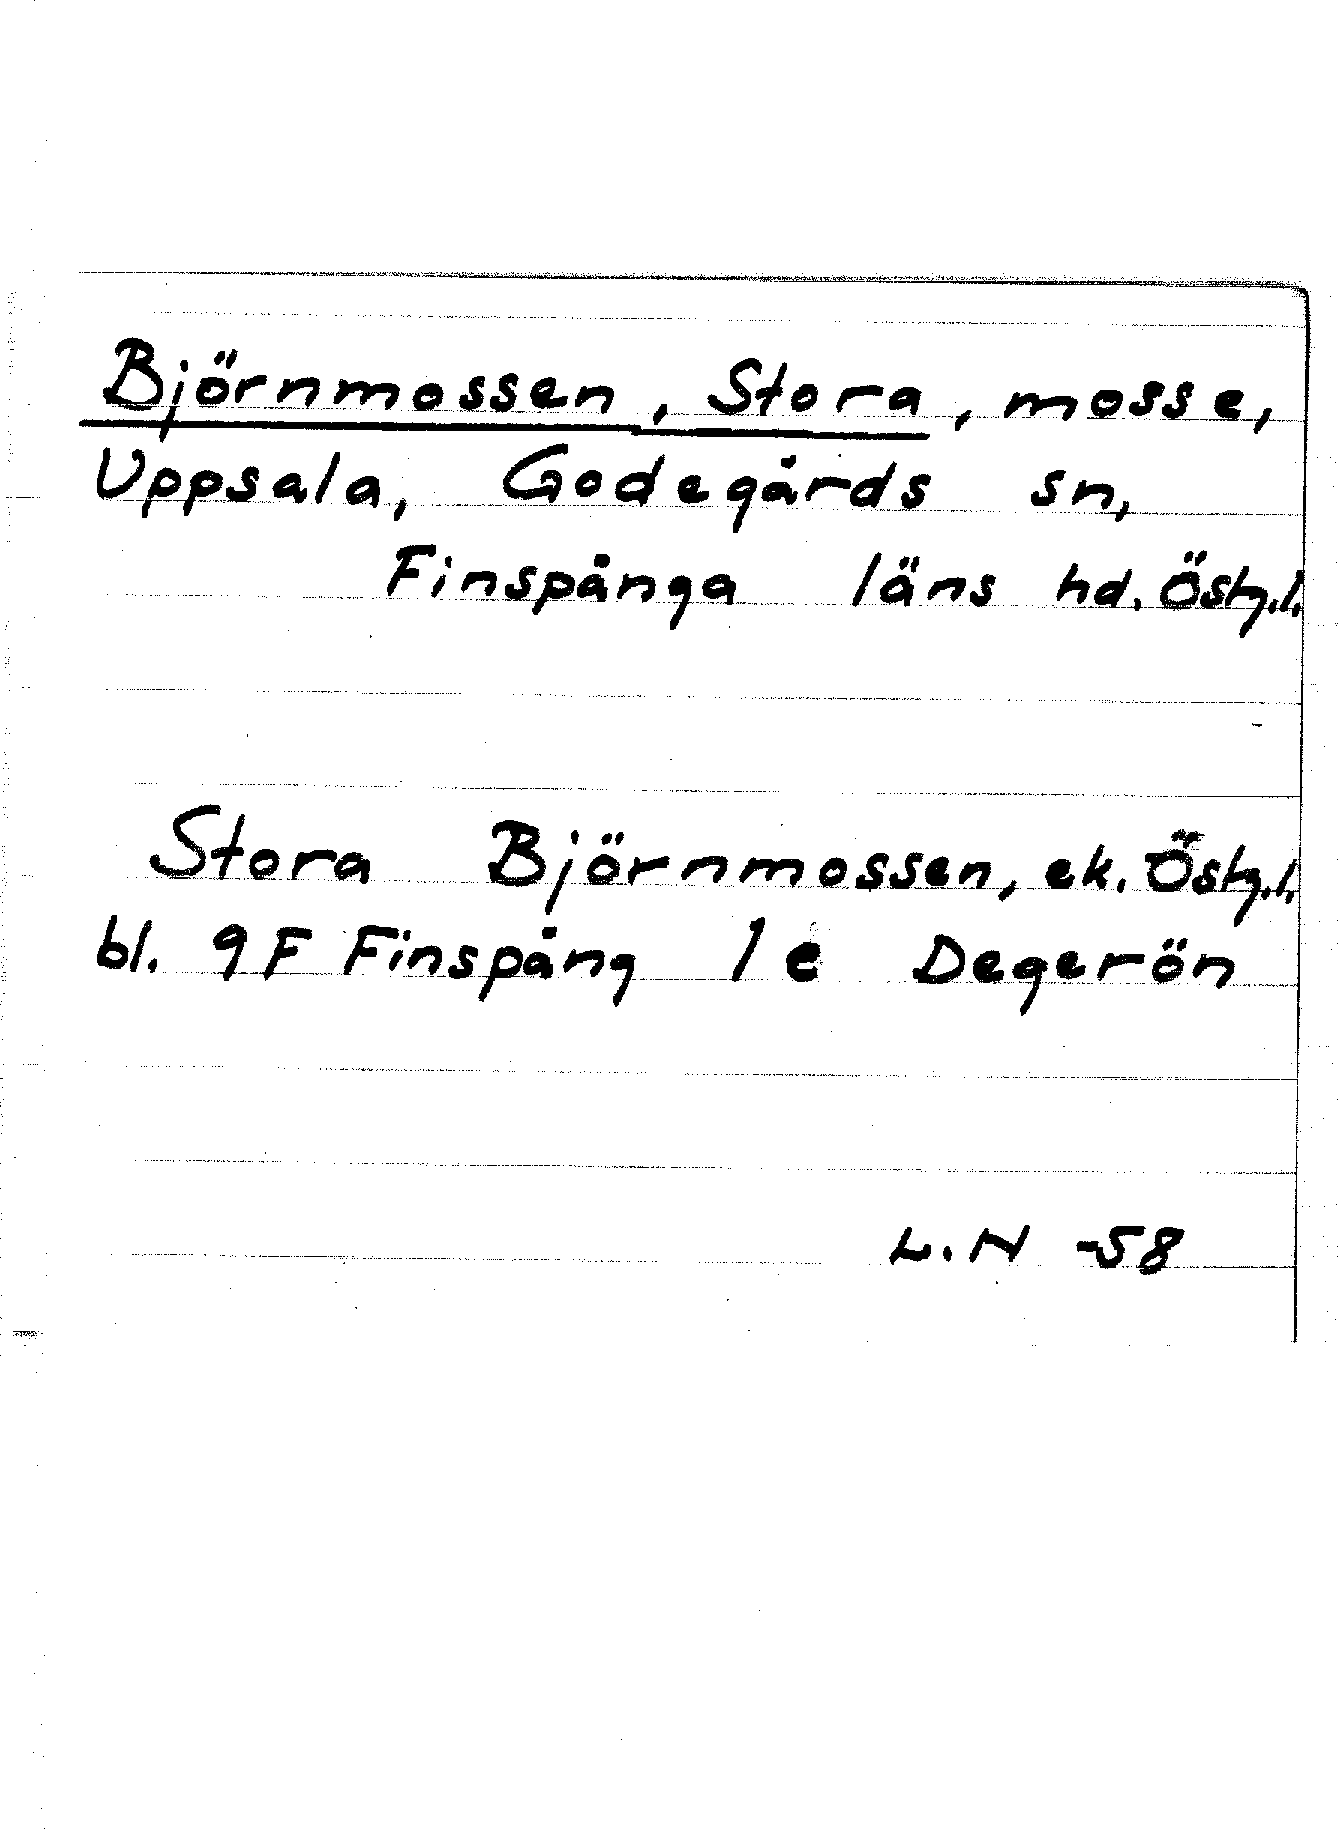 Björnmossen, Stora, mosse,
Uppsala, Godegårds sn,
Finspånga läns hd. Östg.l.
Stora Björnmossen, ek. Östg.l.
bl. 9F Finspång 1e Degerön
L.N -58